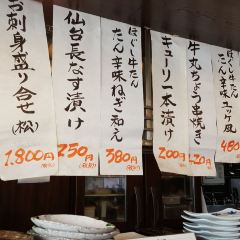 お刺身盛り合せ(松)
1.800円
仙台長なす漬け
250円
ほぐし牛たん
たん辛味ねぎ和え
380円
キューリ一本漬け
200円
牛丸ちょう串焼き
ほぐし牛たん
たん辛味ユッケ風
480